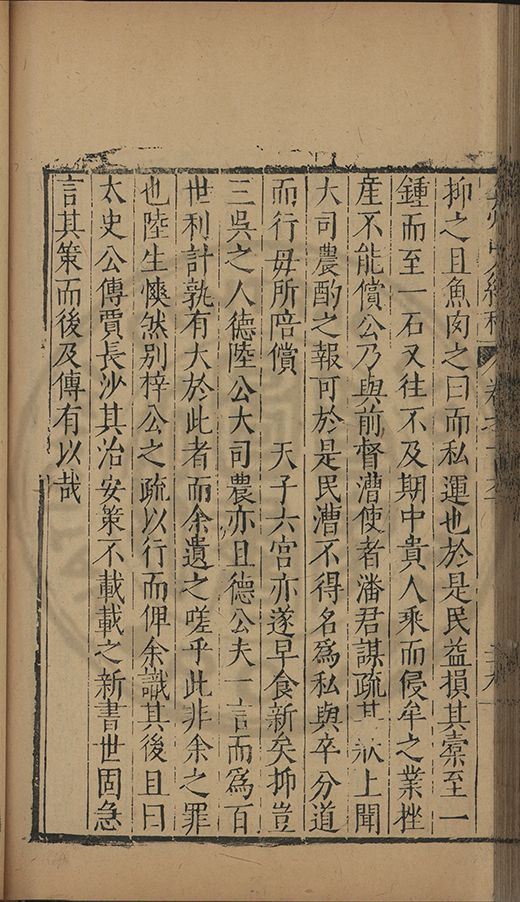 抑之且魚肉之曰而私運也於是民益損其橐至一
鍾而至一石又往不及期中貴人乘而侵牟之業挫
產不能償公乃與前督漕使者潘君謀疏其狀上聞
大司農酌之報可於是民漕不得名爲私與卒分道
而行毋所陪償　天子六宮亦遂早食新矣抑豈
三吳之人德陸公大司農亦且德公夫一言而爲百
世利計孰有大於此者而余遺之嗟乎此非余之罪
也陸生愯然別梓公之疏以行而俾余識其後且曰
太史公傳賈長沙其治安策不載載之新書世固急
言其策而後及傳有以哉